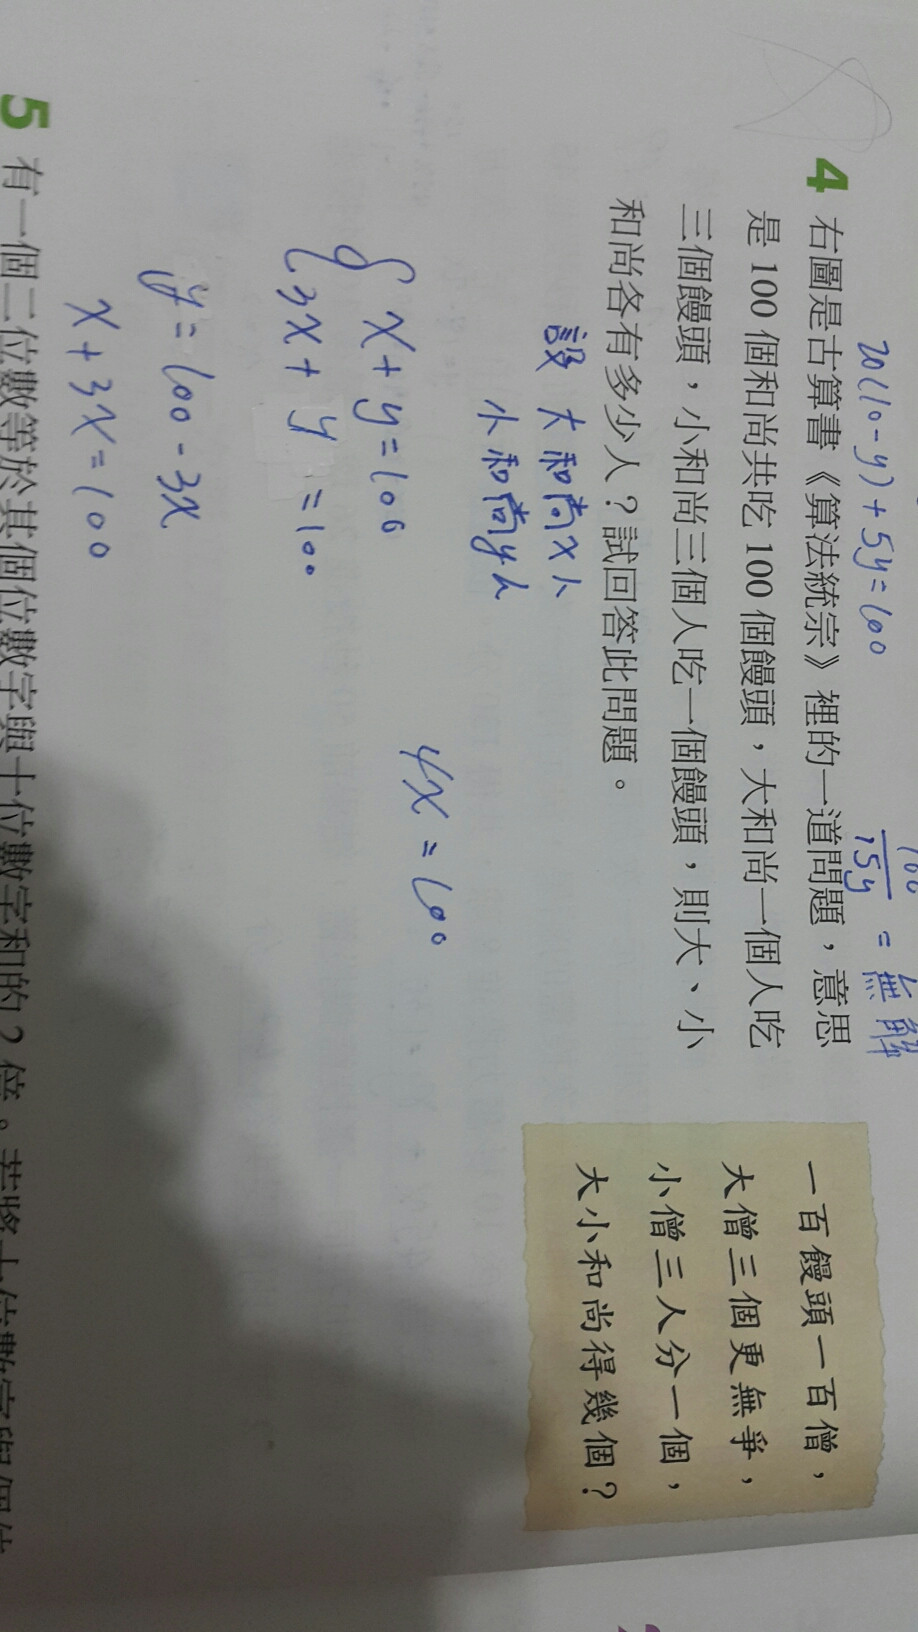 20(10-y)+5y=100
100
15y
=無解
4 右圖是古算書《算法統宗》裡的一道問題，意思
是 100 個和尚共吃 100 個饅頭，大和尚一個人吃
三個饅頭，小和尚三個人吃一個饅頭，則大、小
和尚各有多少人？試回答此問題。
一百饅頭一百僧，
大僧三個更無爭，
小僧三人分一個，
大小和尚得幾個？
設 大和尚x人
小和尚y人
x+y=100
3x+y=100
4x=100
y=100-3x
x+3x=100
5 有一個二位數等於其個位數字與十位數字和的？倍。若將十位數字與個位